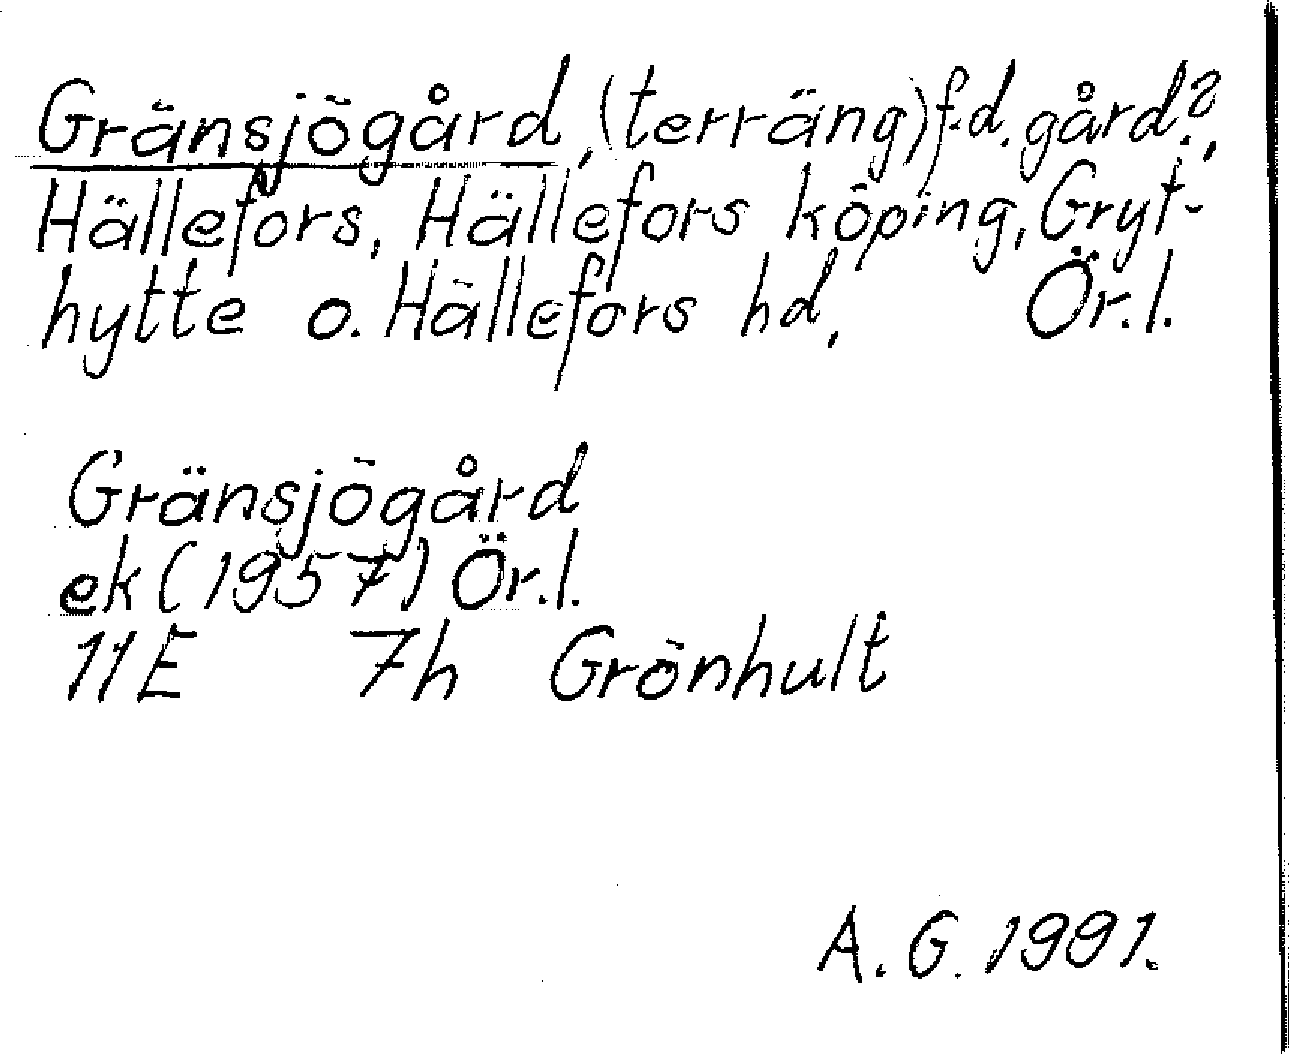 Gränsjögård, (terräng) f.d. gård?,
Hällefors, Hällefors köping, Gryt-
hytte o. Hällefors hd, Ör.l.
Gränsjögård
ek (1957) Ör.l.
11E 7h Grönhult
A.G. 1991.